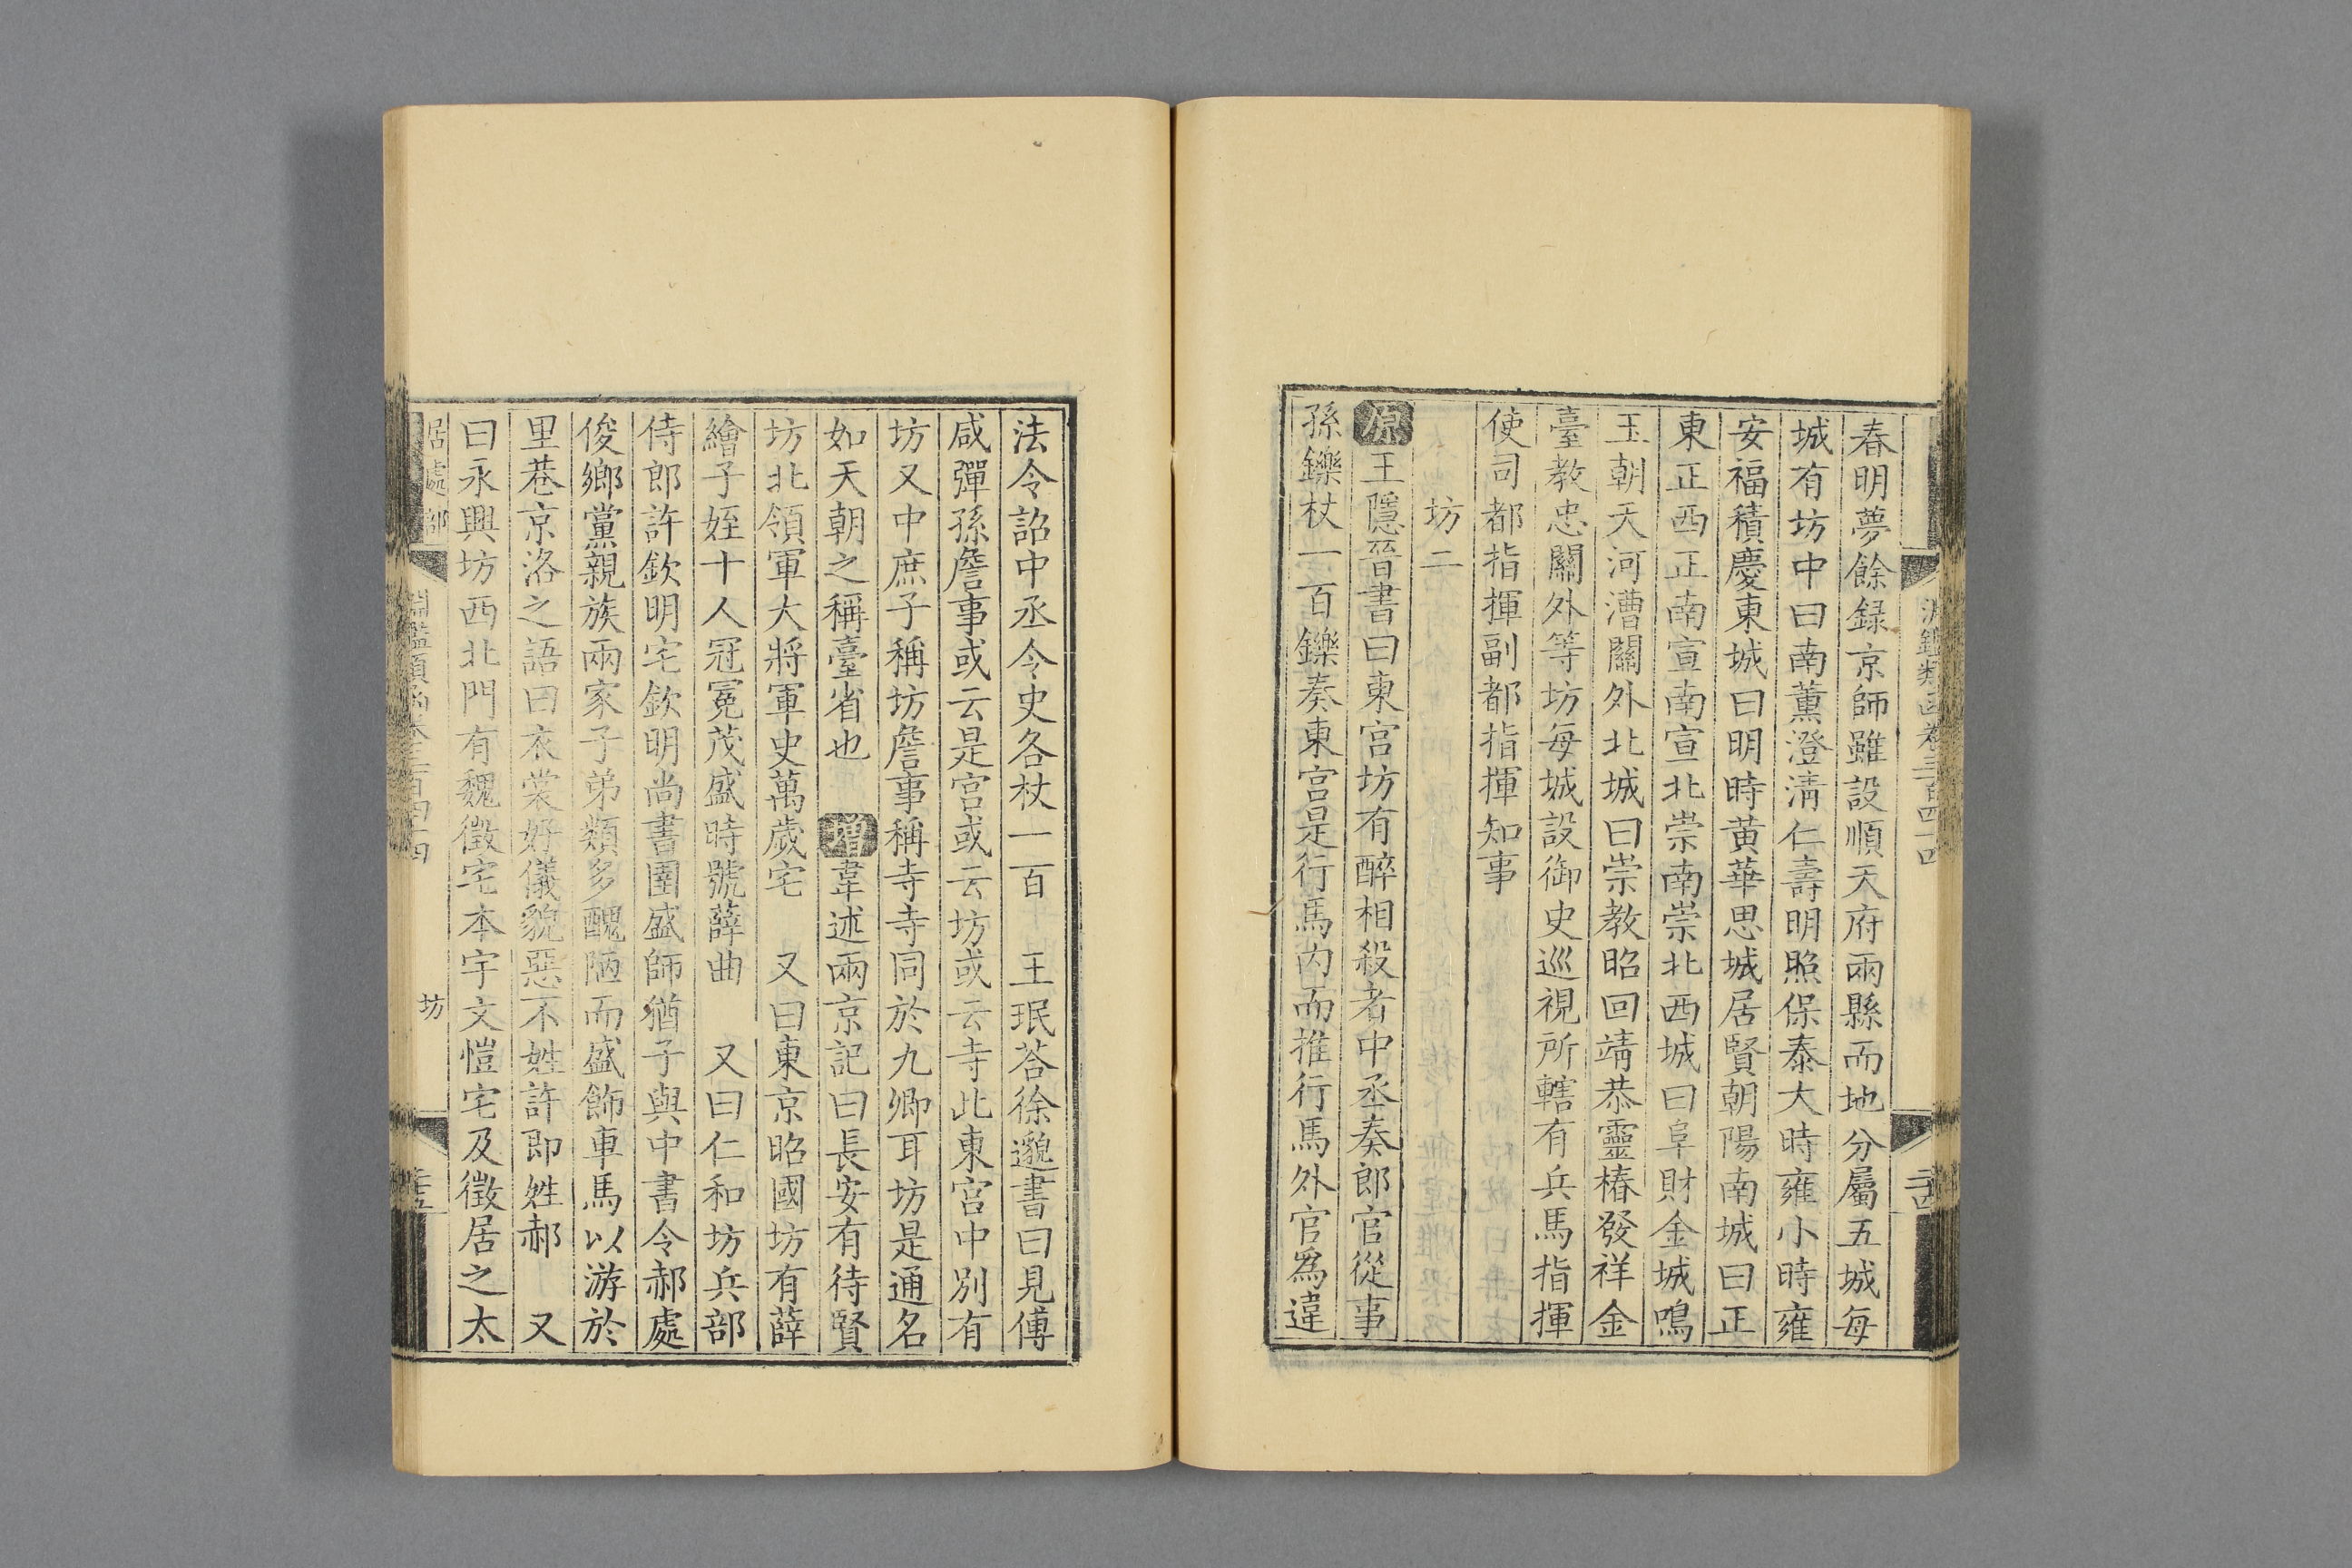 春明夢餘録京師雖設順天府兩縣而地分屬五城每
城有坊中曰南薰澄清仁壽明照保泰大時雍小時雍
安福積慶東城曰明時黃華思城居賢朝陽南城曰正
東正西正南宣南宣北崇南崇北西城曰阜財金城鳴
玉朝天河漕關外北城曰崇教昭回靖恭靈椿發祥金
臺教忠關外等坊每城設御史巡視所轄有兵馬指揮
使司都指揮副都指揮知事
坊二
原王隱晉書曰東宮坊有醉相殺者中丞奏郎官從事
孫鑠杖一百鑠奏東宮是行馬内而推行馬外官為違
法令詔中丞令史各杖一百 王珉荅徐邈書曰見傅
咸彈孫詹事或云是宮或云坊或云寺此東宮中別有
坊又中庶子稱坊詹事稱寺寺同於九卿耳坊是通名
如天朝之稱臺省也 增韋述兩京記曰長安有待賢
坊北領軍大將軍史萬歲宅 又曰東京昭國坊有薛
繪子姪十人冠冕茂盛時號薛曲 又曰仁和坊兵部
侍郎許欽明宅欽明尚書圉盛師猶子與中書令郝處
俊鄉黨親族兩家子弟類多醜陋而盛飾車馬以游於
里巷京洛之語曰衣裳好儀貌惡不姓許即姓郝 又
曰永興坊西北門有魏徵宅本宇文愷宅及徵居之太
居處部 淵鑑類函卷三百四十四 坊